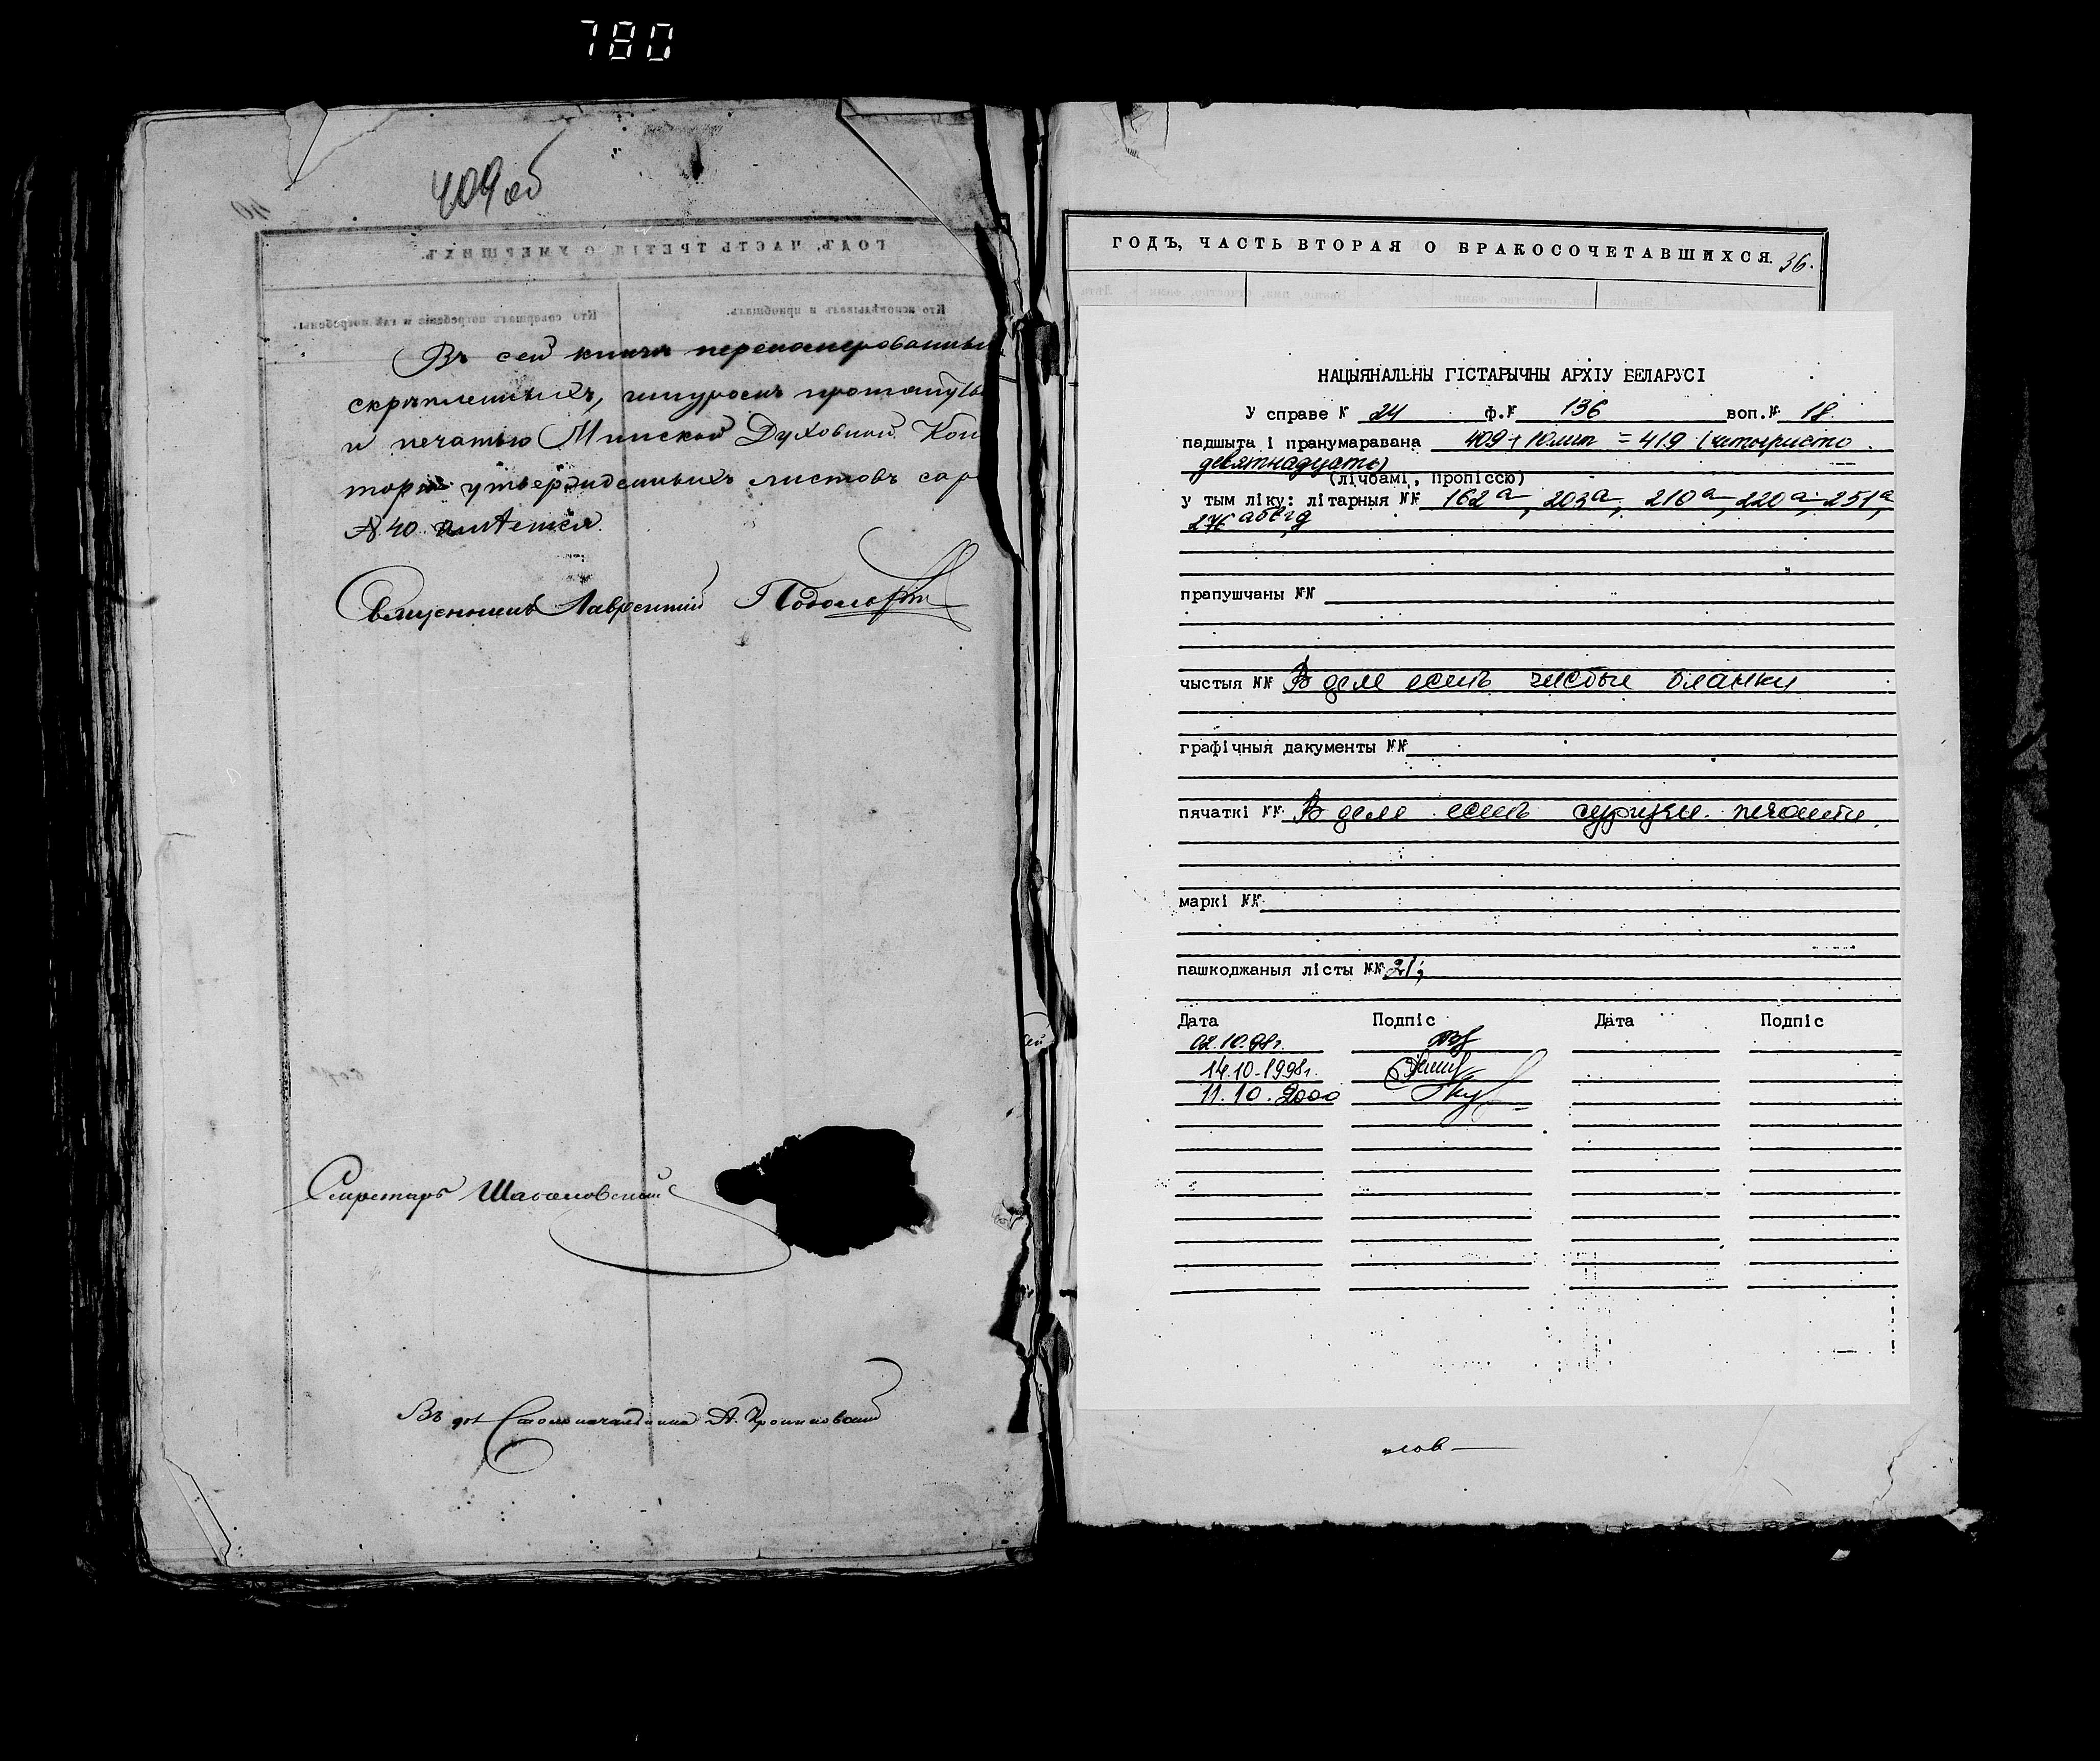 780
409 об
ГОДЪ, ЧАСТЬ ТРЕТІЯ О УМЕРШИХЪ.
Кто исповѣдывалъ и пріобщалъ.
Кто совершалъ погребеніе и гдѣ погребены.
Въ сей книгѣ перенумерованныхъ
скрѣпленныхъ, шнуромъ протянутыхъ
и печатью Минской Духовной Кон
торіи утвержденныхъ листовъ сор
№ 40 имѣется
Священникъ Лаврентій
Секретарь
Въ дол Столоначальника А.
ГОДЪ, ЧАСТЬ ВТОРАЯ О БРАКОСОЧЕТАВШИХСЯ. 36.
НАЦЫЯНАЛЬНЫ ГІСТАРЫЧНЫ АРХІУ БЕЛАРУСІ
У справе № 24 ф.№ 136 воп.№ 18
падшыта і пранумаравана 409 + 10 лит = 419 (четыристо
девятнадцать)
(лічбамі, пропіссю)
у тым ліку: літарныя №№ 162а, 203а, 210а, 220а, 251а,
276 абвгд
прапушчаны №№
чыстыя №№ В деле есть чистые бланки
графічныя дакументы №№
пячаткі №№ В деле есть сургучн. печати.
маркі №№
пашкоджаныя лісты №№ 21;
Дата Подпіс Дата Подпіс
02.10.98г.
14.10.1998г.
11.10.2000